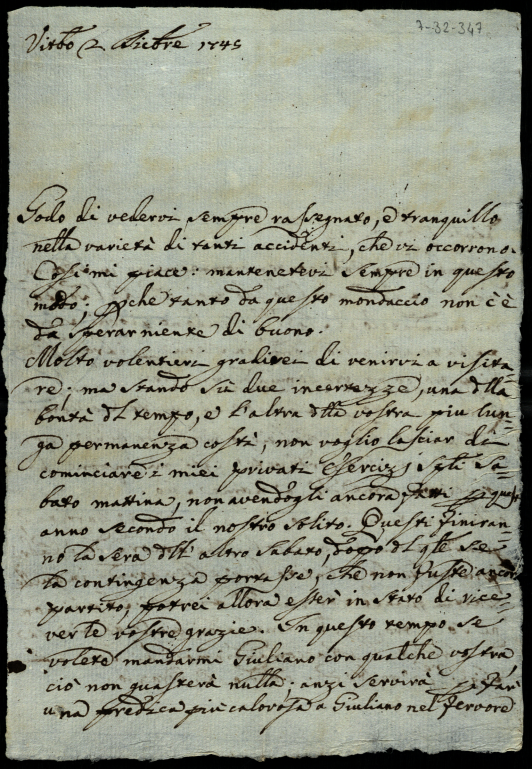 7-32-347
Vitbo 2 Dicbre 1745
Godo di vedervi sempre rassegnato, e tranquillo
nella varietà di tanti accidenti, che vi occorrono.
Così mi piace: mantenetevi sempre in questo
modo; pche tanto da questo mondaccio non c'è
da sperar niente di buono.
Molto volentieri gradirei di venirvi a visita-
re; ma stando sù due incertezze, una dlla
bontà dl tempo, e l'altra dlla vostra piu lun-
ga permanenza costì, non voglio lasciar di
cominciare i miei privati Esercizj Sa-
bato mattina, non avendogli ancora fatti p quest'
anno secondo il nostro solito. Questi finiran-
no la sera dll' altro Sabato, dopo dl qle se
la contingenza portasse, che non fuste ancor
partito, potrei allora esser in stato di rice-
ver le vostre grazie. In questo tempo se
volete mandarmi Giuliano con qualche vostra,
ciò non guasterà nulla; anzi servirà p far
una predica più calorosa a Giuliano nel fervore